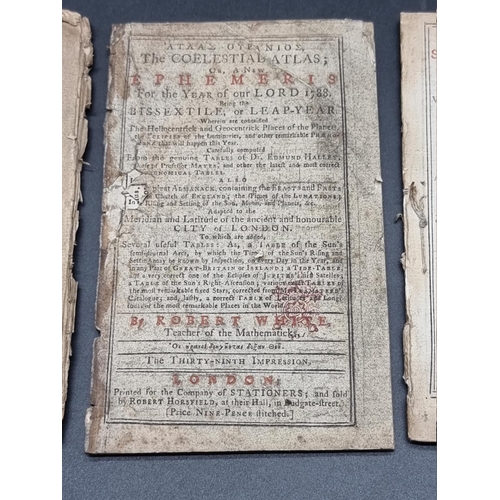 ΑΤΛΑΣ ΟΥΡΑΝΙΟΣ.
The COELESTIAL ATLAS;
Or, A New
EPHEMERIS
For the Year of our LORD 1788.
Being the
BISSEXTILE, or LEAP-YEAR
Wherein are contained
The Heliocentrick and Geocentrick Places of the Planets
the ECLIPSES of the Luminaries, and other remarkable PHÆNO-
that will happen this Year.
Carefully computed
From the genuine TABLES of Dr. EDMUND HALLEY,
Professor MAYER, and other the latest and most correct
TABLES.
ALSO
ALMANACK, containing the FEASTS and FASTS
Church of ENGLAND; the Times of the LUNATIONS;
Rising and Setting of the Sun, Moon, and Planets, &c.
Adapted to the
Meridian and Latitude of the ancient and honourable
CITY of LONDON.
To which are added,
Several useful TABLES: As, a TABLE of the Sun's
Semidiurnal Arcs, by which the Time of the Sun's Rising and
Setting may be known by Inspection, on every Day in the Year, and
in any Part of GREAT-BRITAIN or IRELAND; a TIDE-TABLE
and a very correct one of the Eclipses of JUPITER's Satellites;
a TABLE of the Sun's Right-Ascension; various TABLES of
the most remarkable fixed Stars, corrected from
Catalogue; and, lastly, a correct TABLE of Latitudes and Longi-
of the most remarkable Places in the World.
By ROBERT WHITE,
Teacher of the Mathematicks.
Οι ουρανοι διηγουνται δοξαν Θεου.
The THIRTY-NINTH IMPRESSION.
LONDON:
Printed for the Company of STATIONERS; and sold
by ROBERT HORSFIELD, at their Hall, in Ludgate-street.
[Price NINE-PENCE stitched.]